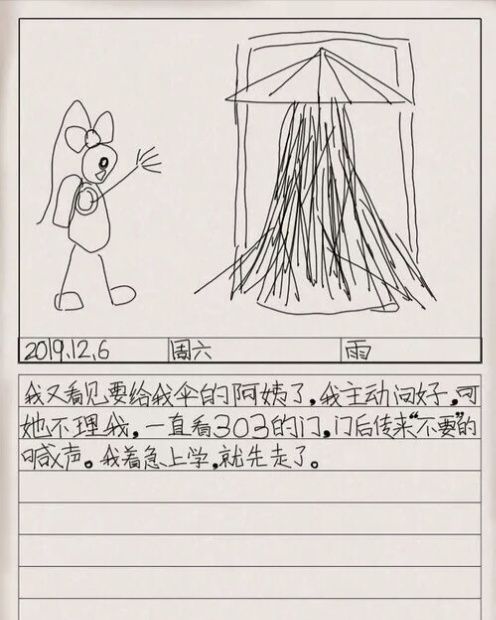 2019.12.6 周六 雨
我又看见要给我伞的阿姨了,我主动问好,可
她不理我,一直看303的门,门后传来“不要”的
喊声。我着急上学,就先走了。